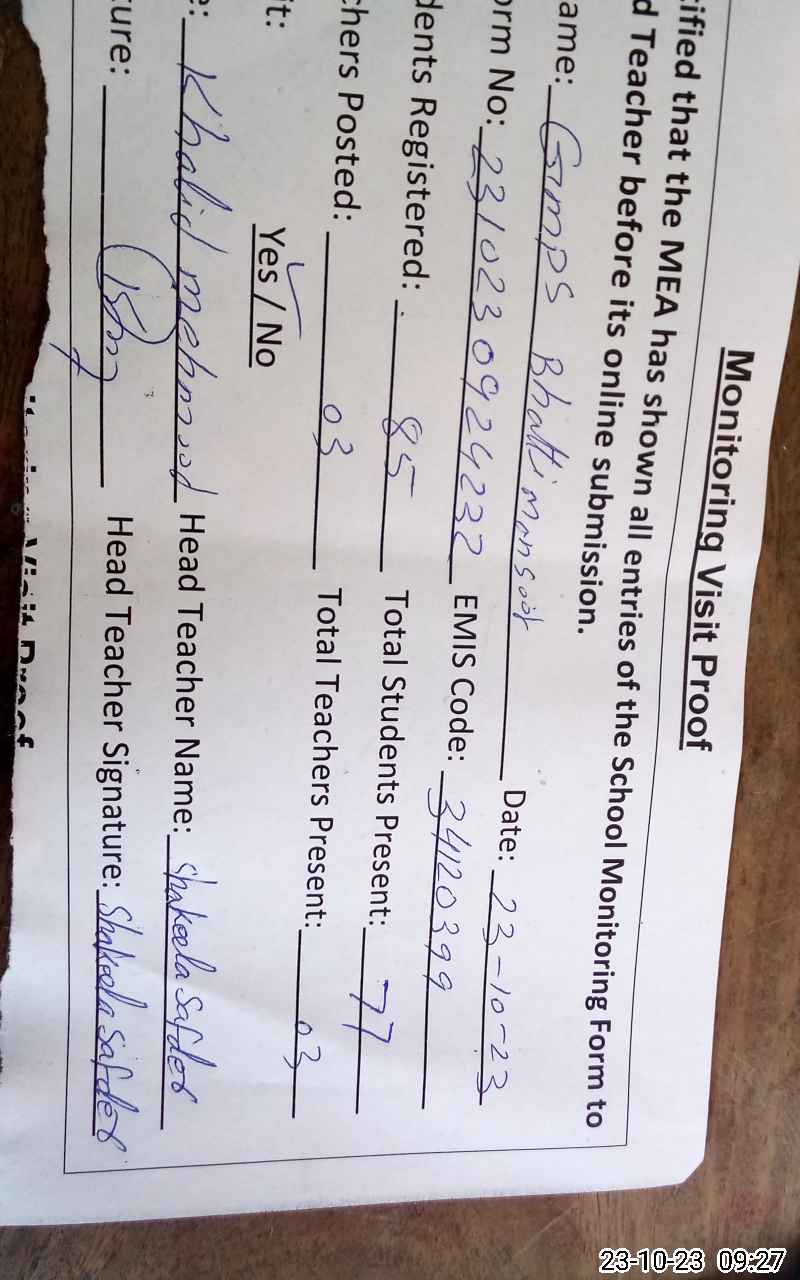 Monitoring Visit Proof
ified that the MEA has shown all entries of the School Monitoring Form to
d Teacher before its online submission.
ame: GMPS Bhatti Mansoor Date: 23-10-23
orm No: 231023 0924232 EMIS Code: 34120399
dents Registered: 85 Total Students Present: 77
chers Posted: 03 Total Teachers Present: 03
it: Yes / No
e: Khalid mehmood Head Teacher Name: Shakeela Safder
ure: Head Teacher Signature: Shakeela Safder
Visit Proof
23-10-23 09:27